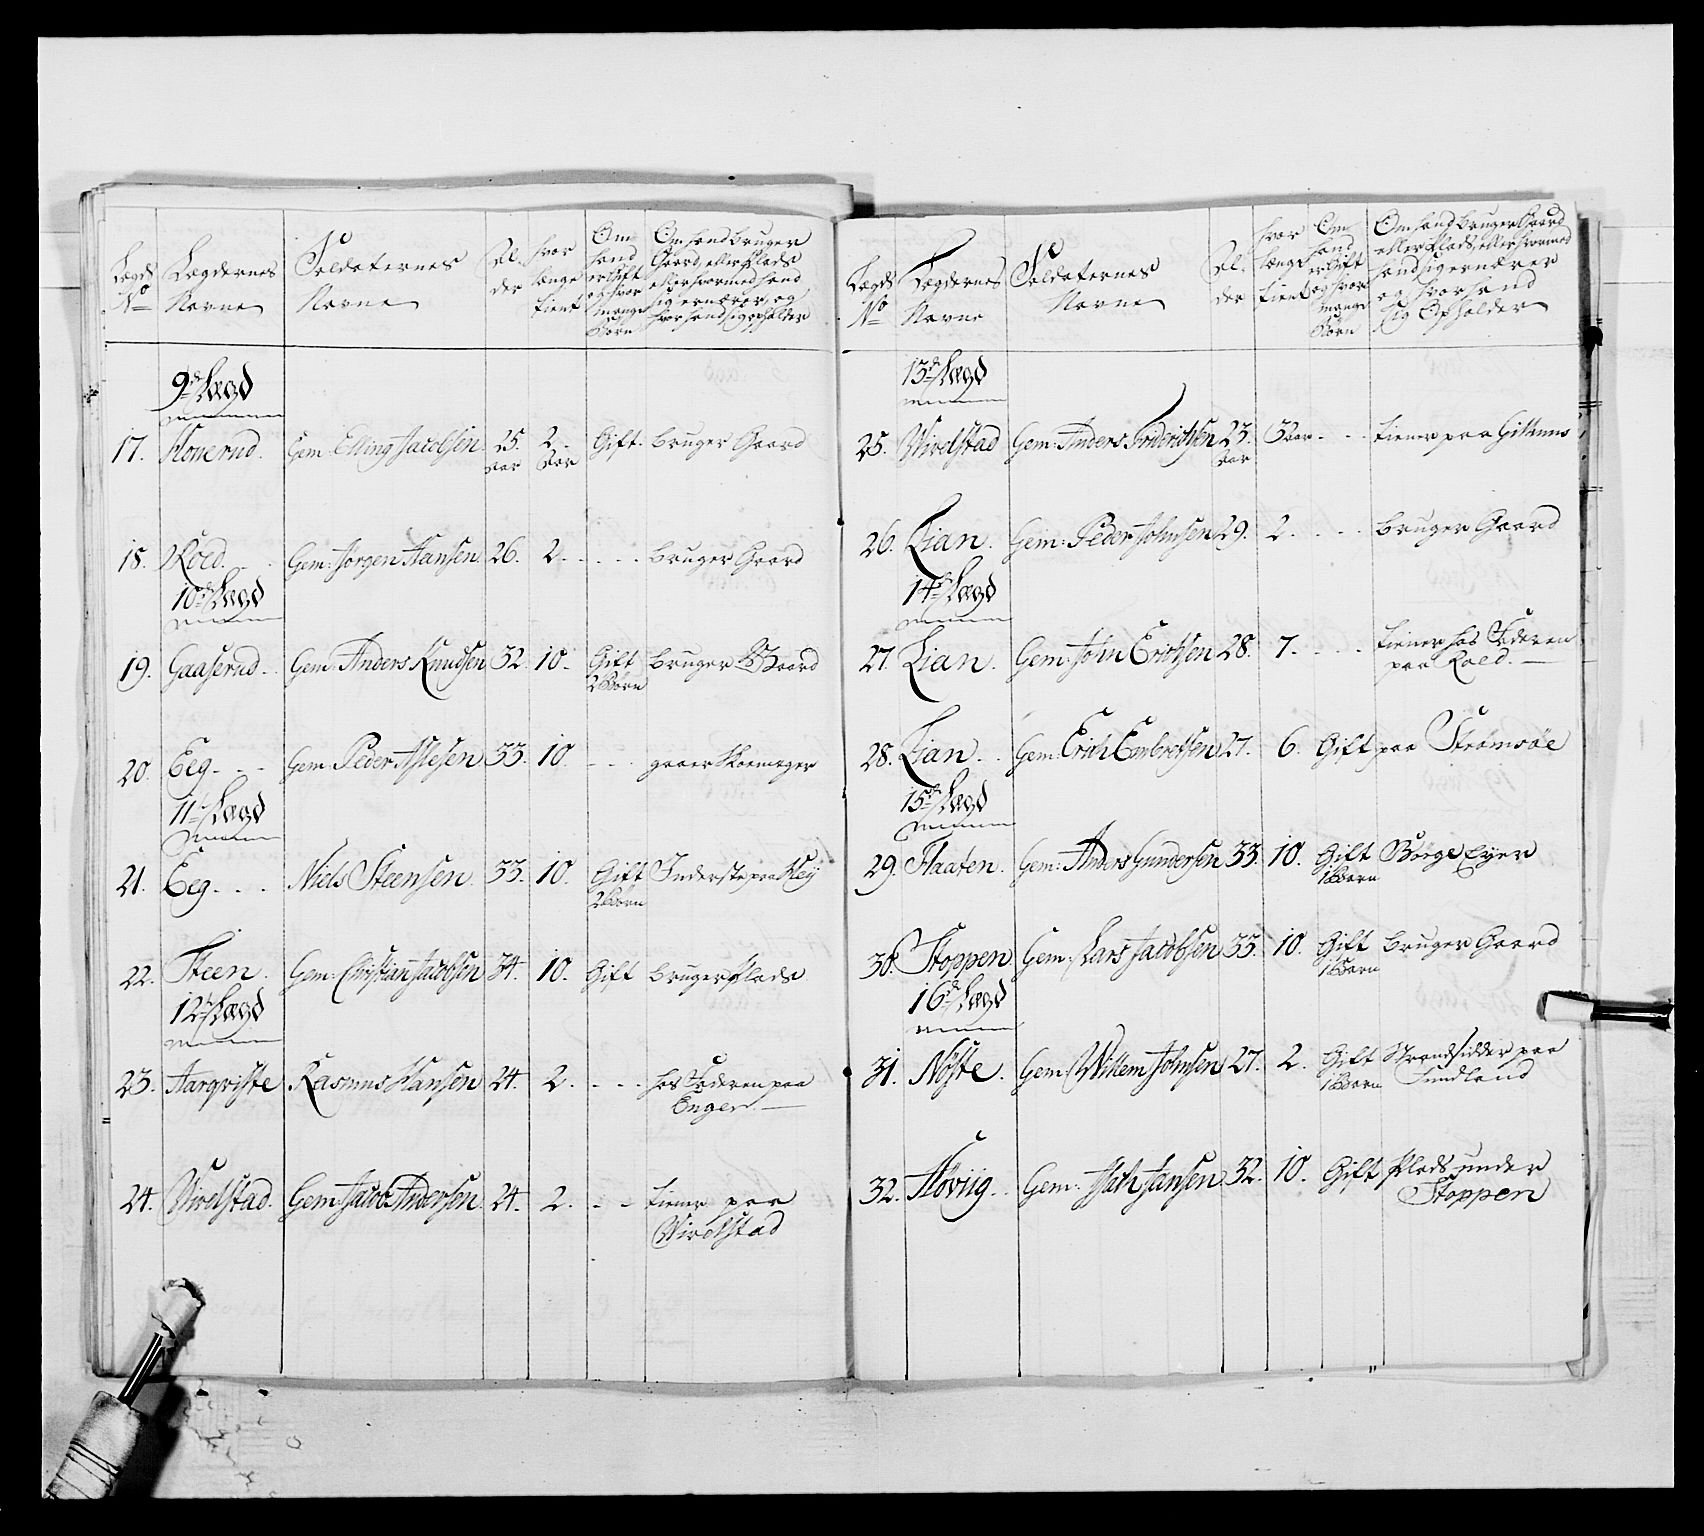 Lægds No
Lægdernes Navne
Soldaternes Navne
Al-
der
hvor
længe
tient
Om
hand
er Gift
og hvor
mange
Børn
Om hand bruger
Gaard, eller Plads
eller hvormed hand
sig ernærer, og
hvor hand sig opholder
9de Lægd
17. Honerud. Gem: Elling Jacobsen. 25. Aar 2. Aar Gift. bruger Gaard
18. Kold. Gem: Jørgen Hansen 26. 2. - - - - bruger Gaard
10de Lægd
19. Gaaserud. Gem: Anders Knudsen 32. 10. Gift 2 Børn bruger Gaard
20. Eeg - - - Gem: Peder Aslesen 33. 10 - - - gaaer Skoemager
11te Lægd
21. Eeg - - - Niels Steensen 33. 10. Gift 2 Børn Inderste paa Røy
22. Steen. Gem: Christian Jacobsen 34. 10. Gift bruger Plads
12te Lægd
23. Aarqviste Rasmus Hansen 24. 2. - - - hos Faderen paa
Enger. —
24. Virdstad. Gem: Jacob Andersen. 24. 2. - - tiener paa
Virdstad
Lægds No
Lægdernes Navne
Soldaternes Navne
Al-
der
hvor
længe
tient
Om
hand
er Gift
og hvor
mange
Børn
Om hand bruger Gaard
eller Plads, eller hvormed
hand sig ernærer
og hvor hand
sig Opholder
13de Lægd
25. Virdstad Gem: Anders Friderichsen 23. Aar 3 Aar - - - tiener paa
26. Lian. Gem: Peder Johnsen 29. 2. - - - bruger Gaard
14de Lægd
27. Lian. Gem: John Erichsen 28. 7. - - - tiener hos Faderen
paa Kold. —
28. Lian. Gem: Erich Embretsen 27. 6. Gift paa Strømsøe
15de Lægd
29. Flaaten. Gem: Anders Gundersen 33. 10. Gift 1 Barn Børge Eyer
30. Stoppen Gem: Lars Jacobsen 33. 10. Gift 1 Barn bruger Gaard
16de Lægd
31. Nøste. Gem: Willem Johnsen 27. 2. Gift 1 Barn Strandsidder paa
Sundland
32. Høviig. Gem: Jansen 32. 10. Gift Plads under
Stoppen